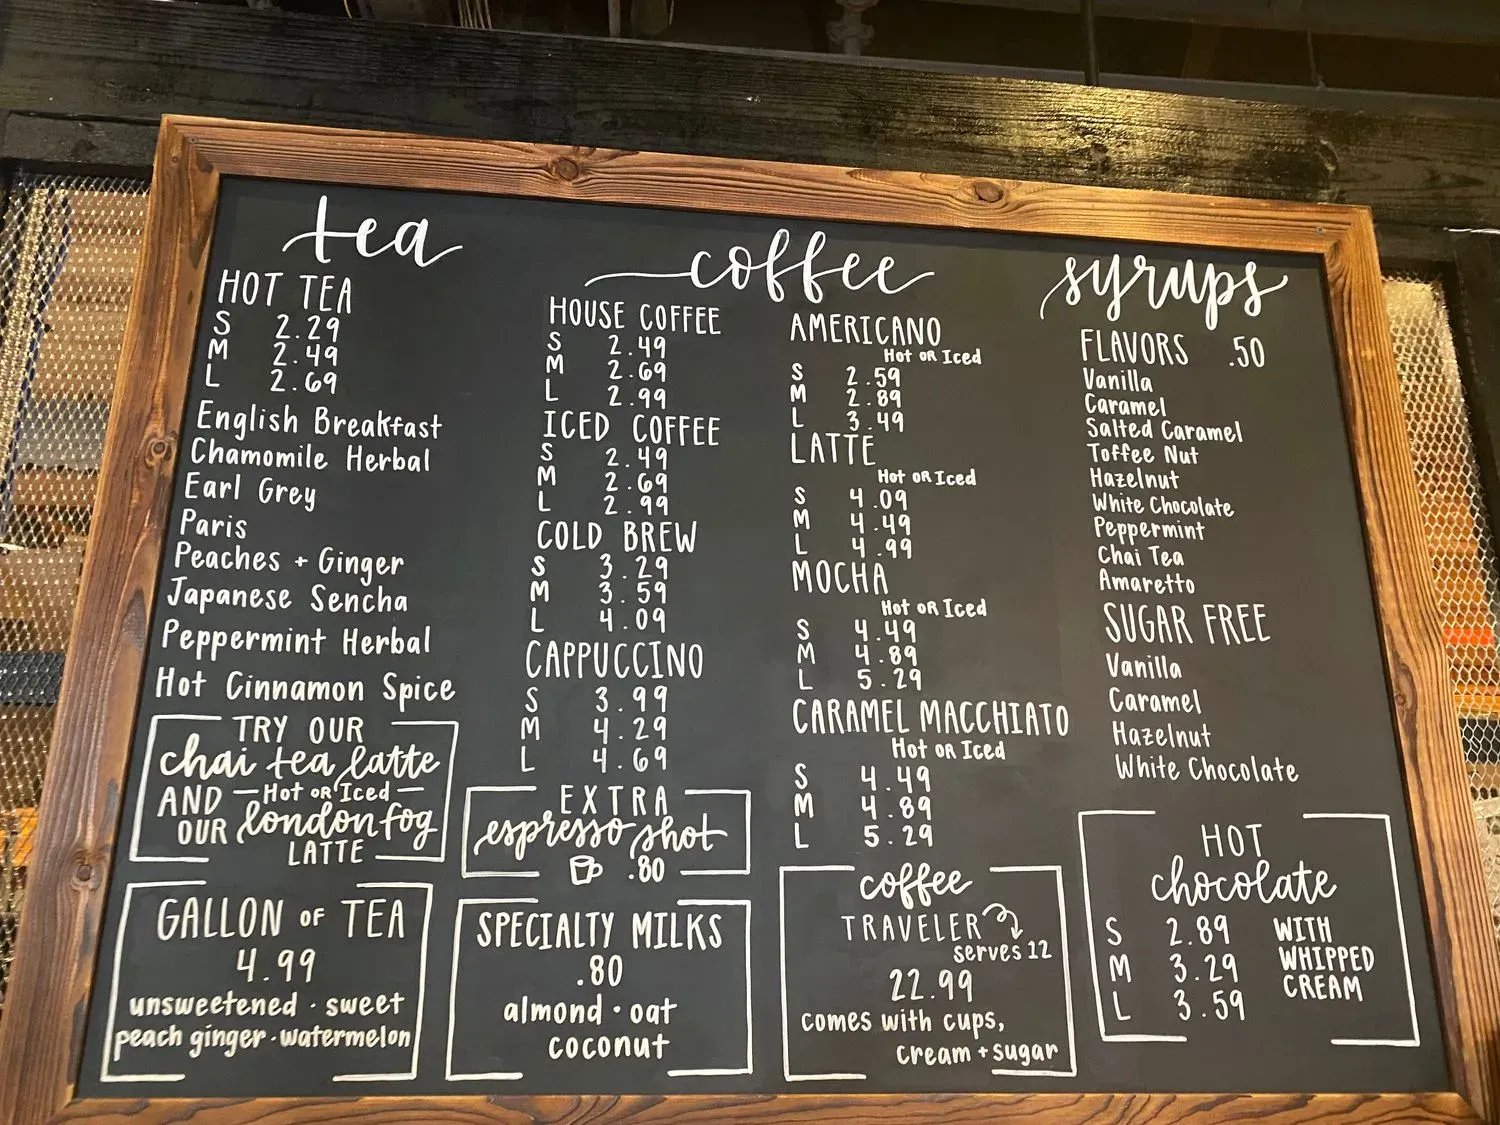 tea
HOT TEA
S 2.29
M 2.49
L 2.69
English Breakfast
Chamomile Herbal
Earl Grey
Paris
Peaches + Ginger
Japanese Sencha
Peppermint Herbal
Hot Cinnamon Spice
TRY OUR
chai tea latte
AND —Hot or Iced—
OUR london fog
LATTE
GALLON OF TEA
4.99
unsweetened · sweet
peach ginger · watermelon
coffee
HOUSE COFFEE
S 2.49
M 2.69
L 2.99
ICED COFFEE
S 2.49
M 2.69
L 2.99
COLD BREW
S 3.29
M 3.59
L 4.09
CAPPUCCINO
S 3.99
M 4.29
L 4.69
EXTRA
espresso shot
.80
SPECIALTY MILKS
.80
almond · oat
coconut
AMERICANO
Hot OR Iced
S 2.59
M 2.89
L 3.49
LATTE
Hot OR Iced
S 4.09
M 4.49
L 4.99
MOCHA
Hot OR Iced
S 4.49
M 4.89
L 5.29
CARAMEL MACCHIATO
Hot OR Iced
S 4.49
M 4.89
L 5.29
coffee
TRAVELER
serves 12
22.99
comes with cups,
cream + sugar
syrups
FLAVORS .50
Vanilla
Caramel
Salted Caramel
Toffee Nut
Hazelnut
White Chocolate
Peppermint
Chai Tea
Amaretto
SUGAR FREE
Vanilla
Caramel
Hazelnut
White Chocolate
HOT
chocolate
S 2.89 WITH
M 3.29 WHIPPED
L 3.59 CREAM